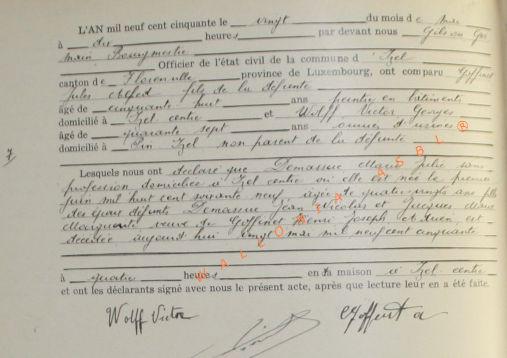 L'AN mil neuf cent cinquante le vingt du mois de mai
à dix heures par devant nous Gilson Gas
main Bourgmestre
Officier de l'état civil de la commune d'Izel
canton de Florenville province de Luxembourg, ont comparu Goffinet
Jules Alfred fils de la défunte
âgé de cinquante huit ans peintre en bâtiments
domicilié à Izel centre et Wolff Victor Georges
âgé de quarante sept ans ouvrier d'usines
domicilié à Pin Izel non parent de la défunte
7
Lesquels nous ont déclaré que Demasure Maria Julie sans
profession domiciliée à Izel centre où elle est née le premier
juin mil huit cent soixante neuf âgée de quatre-vingts ans fille
des époux défunts Demasure Jean Nicolas et Jacques Marie
Marguerite veuve de Goffinet Henri Joseph est
décédée aujourd'hui vingt mai mil neuf cent cinquante
à quatre heures en sa maison à Izel centre
et ont les déclarants signé avec nous le présent acte, après que lecture leur en a été faite.
WALLONIA ASBL ®
Wolff Victor Goffinet a